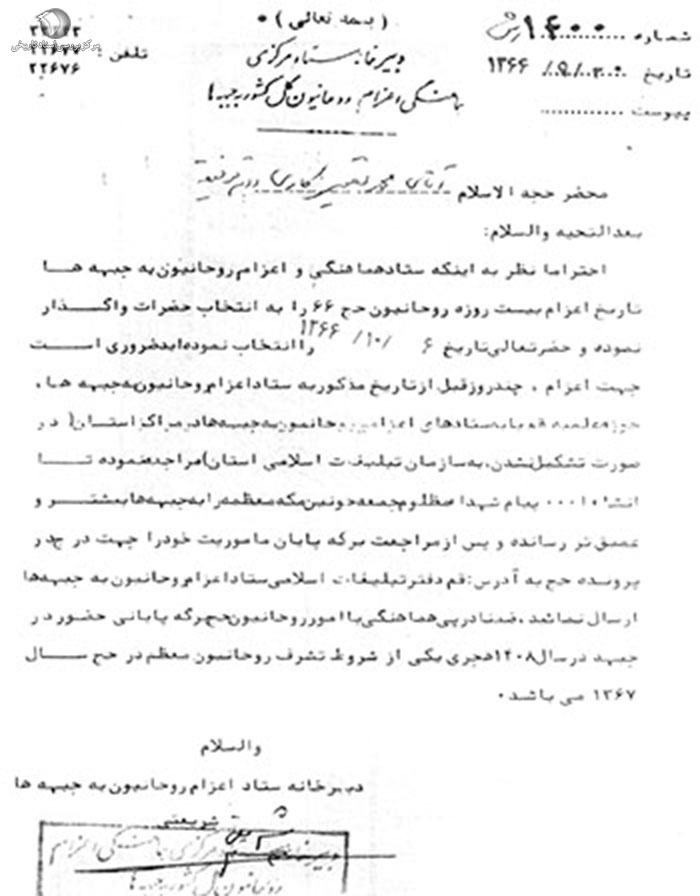 ( بسمه تعالی )
دبیرخانه ستاد مرکزی
هماهنگی اعزام روحانیون کل کشور به جبهه ها
شماره ۱۴۰۰۰
تاریخ ۱۳۶۶
پیوست
تلفن :
۲۲۶۷۷
۲۲۶۷۶
مرکز بررسی اسناد تاریخی
محضر حجه الاسلام آقای محمد
بعدالتحیه والسلام:
احتراما نظر به اینکه ستاد هماهنگی و اعزام روحانیون به جبهه ها
تاریخ اعزام بیست روزه روحانیون حج ۶۶ را به انتخاب حضرات واگذار
نموده و حضرتعالی تاریخ ۶ /۱۰/ ۱۳۶۶ را انتخاب نموده اید ضروری است
جهت اعزام ، چند روز قبل از تاریخ مذکور به ستاد اعزام روحانیون به جبهه ها ،
حوزه علمیه قم یا به ستادهای اعزام روحانیون به جبهه ها در مراکز استان ( در
صورت تشکیل نشدن، به سازمان تبلیغات اسلامی استان) مراجعه نموده تا
انشاء ا... پیام شهدا مظلوم جمعه خونین مکه معظمه را به جبهه ها بیشتر و
عمیق تر رسانده و پس از مراجعت برگه پایان ماموریت خود را جهت درج در
پرونده حج به آدرس: قم دفتر تبلیغات اسلامی ستاد اعزام روحانیون به جبهه ها
ارسال نمائید ، ضمنا در پی هماهنگی با امور روحانیون حج برگه پایانی حضور در
جبهه در سال ۱۴۰۸ هجری یکی از شروط تشرف روحانیون معظم در حج سال
۱۳۶۷ می باشد .
والسلام
دبیرخانه ستاد اعزام روحانیون به جبهه ها
شریعتی
دبیرخانه ستاد مرکزی هماهنگی اعزام
روحانیون کل کشور به جبهه ها